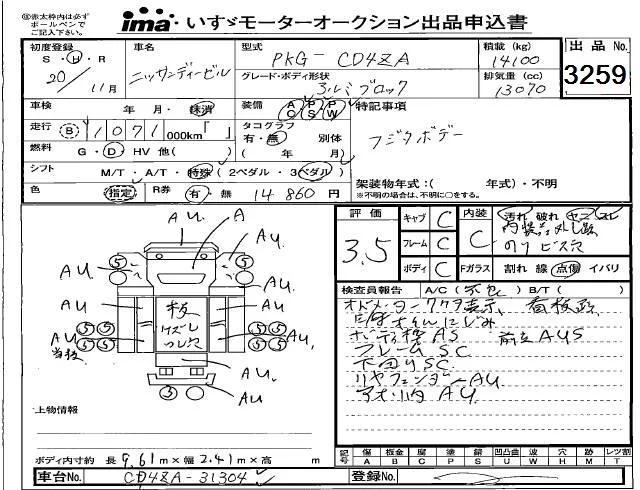 ㊟赤太枠内は必ず
ボールペンで
ご記入下さい。
ima いすゞモーターオークション出品申込書
初度登録 車名 型式 積載(kg) 出品No.
S・H・R 20/11月 ニッサンディーゼル PKG-CD4ZA 14100 3259
グレード・ボディ形状 排気量(cc)
アルミブロック 13070
車検 年・月・抹消 装備 AC PS PW 特記事項
走行 B 1071 000km「 」 タコグラフ 有・無 別体 フジタボデー
燃料 G・D HV 他( ) ( 年 月)
シフト M/T・A/T・特殊(2ペダル・3ペダル) 架装物年式:( 年式)・不明
色 指定 R券 有・無 14860円 ※不明の場合は、不明に○をする。
AU. A 評価 キャブ C 内装 汚れ 破れ ヤニ スレ
3.5 フレーム C C 内装ネジ跡
のり ビス穴
ボディ C Fガラス 割れ 線 点傷 イバリ
⑤ ⑤
AU AU
検査員報告 A/C( ) B/T( )
AU 板 AU 看板跡
⑤⑤ ⑤⑤
AU AU
当板 AU ボディ横AS 前立AUS
フレームSC
AU 下回りSC
③ AU リヤフェンダーAU
アオリ内AU
上物情報
ボディ内寸約 長9.61m×幅2.41m×高 m
記号 傷A 板金B 腐C 塗P 錆S 凹凸曲U 波W 穴H 跡M レツ割T
車台No. CD4ZA-31304 登録No.